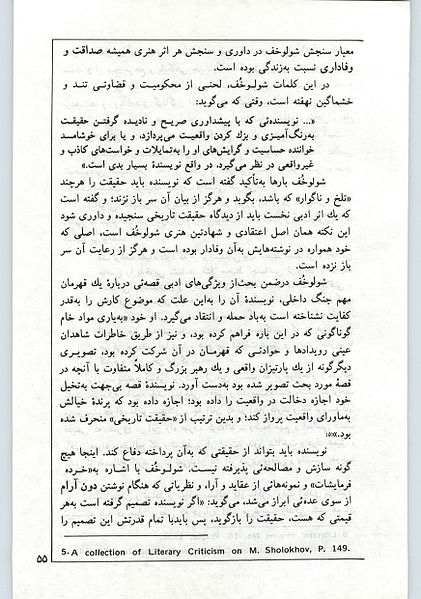 معیار سنجش شولوخف در داوری و سنجش هر اثر هنری همیشه صداقت و
وفاداری نسبت به‌زندگی بوده است.
در این کلمات شولوخُف، لحنی از محکومیت و قضاوتی تند و
خشماگین نهفته است، وقتی که می‌گوید:
«... نویسنده‌ئی که با پیشداوری صریح و نادیده گرفتن حقیقت
به‌رنگ‌آمیزی و بزك کردن واقعیت می‌پردازد، و یا برای خوشامد
خواننده حساسیت و گرایش‌های او را به‌تمایلات و خواست‌های کاذب و
غیرواقعی در نظر می‌گیرد، در واقع نویسندهٔ بسیار بدی است.»
شولوخُف بارها به‌تأکید گفته است که نویسنده باید حقیقت را هرچند
«تلخ و ناگوار» که باشد، بگوید و هرگز از بیان آن سر باز نزند؛ و گفته است
که یك اثر ادبی نخست باید از دیدگاه حقیقت تاریخی سنجیده و داوری شود
این نکته همان اصل اعتقادی و شهادتین هنری شولوخُف است، اصلی که
خود همواره در نوشته‌هایش به‌آن وفادار بوده است و هرگز از رعایت آن سر
باز نزده است.
شولوخُف درضمن بحث‌از ویژگی‌های ادبی قصه‌ئی دربارهٔ یك قهرمان
مهم جنگ داخلی، نویسندهٔ آن را به‌این علت که موضوع کارش را به‌قدر
کفایت نشناخته است به‌باد حمله و انتقاد می‌گیرد. او خود «به‌یاری مواد خام
گوناگونی که در این باره فراهم کرده بود، و نیز از طریق خاطرات شاهدان
عینی رویدادها و حوادثی که قهرمان در آن شرکت کرده بود، تصویری
دیگرگونه از یك پارتیزان واقعی و یك رهبر بزرگ و کاملاً متفاوت با آنچه در
قصهٔ مورد بحث تصویر شده بود به‌دست آورد. نویسندهٔ قصه بی‌جهت به‌تخیل
خود اجازه دخالت در واقعیت را داده بود؛ اجازه داده بود که پرندهٔ خیالش
به‌ماورای واقعیت پرواز کند؛ و بدین ترتیب از «حقیقت تاریخی» منحرف شده
بود.»(۵)
نویسنده باید بتواند از حقیقتی که به‌آن پرداخته دفاع کند. اینجا هیچ
گونه سازش و مصالحه‌ئی پذیرفته نیست. شولوخُف با اشاره به«خرده
فرمایشات» و نمونه‌هائی از عقاید و آرا، و نظریاتی که هنگام نوشتن دون آرام
از سوی عده‌ئی ابراز می‌شد، می‌گوید: «اگر نویسنده تصمیم گرفته است به‌هر
قیمتی که هست، حقیقت را بازگوید، پس بایدبا تمام قدرتش این تصمیم را
5-A collection of Literary Criticism on M. Sholokhov, P. 149.
۵۵